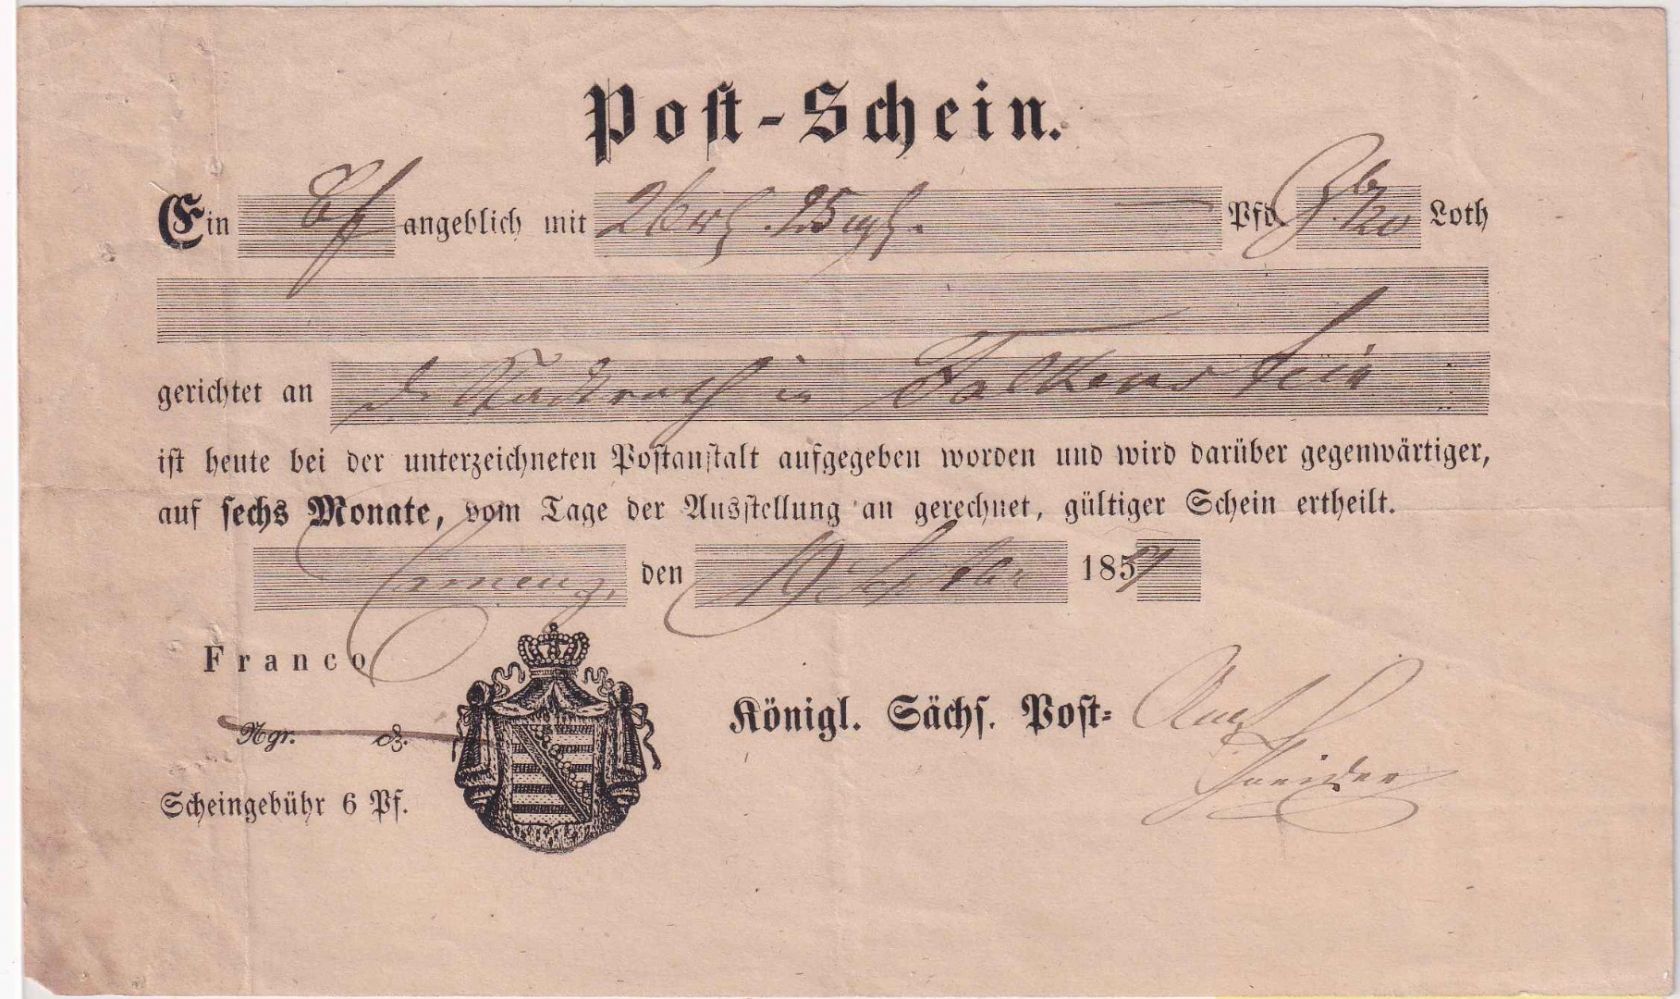 Post-Schein.
Ein Bf angeblich mit 26 rf. 25 ngf. — Pfd. Loth
gerichtet an d. Stadtrath in Falkenstein
ist heute bei der unterzeichneten Postanstalt aufgegeben worden und wird darüber gegenwärtiger,
auf sechs Monate, vom Tage der Ausstellung an gerechnet, gültiger Schein ertheilt.
Camenz, den 19 Septbr 185
Franco
Königl. Sächs. Post- Amt
Ngr. ₰.
Schneider
Scheingebühr 6 Pf.